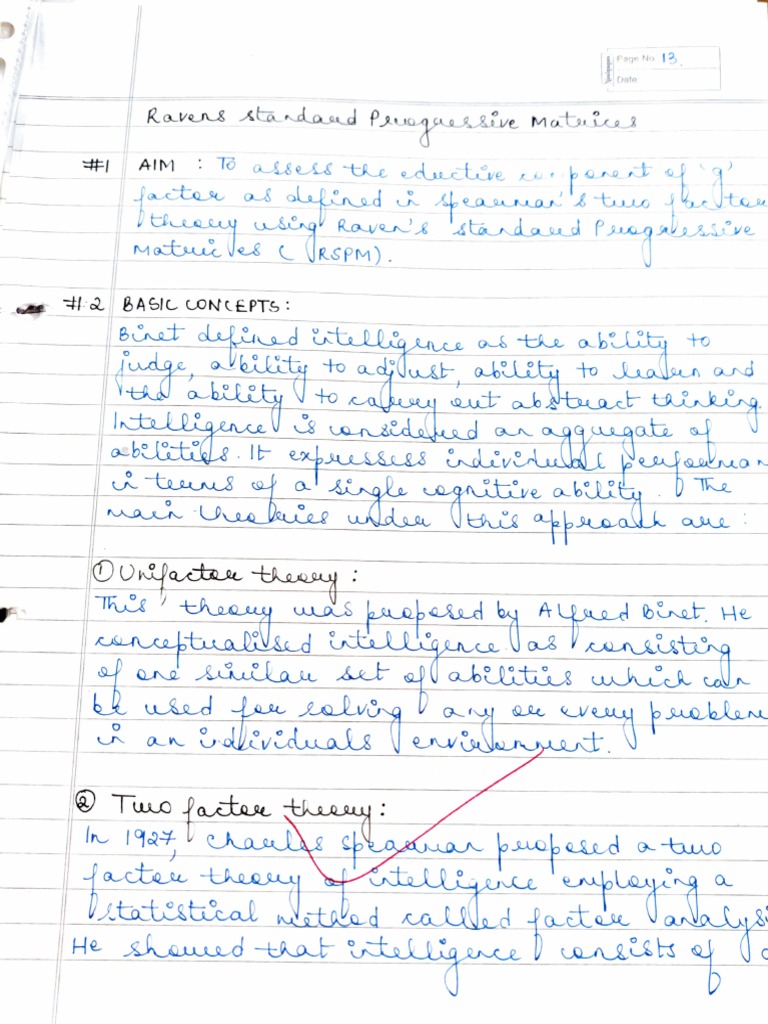 Page No. 13.
Date
Ravens Standard Progressive Matrices
#1 AIM : To assess the eductive component of 'g'
factor as defined in spearman's two factor
theory using Raven's standard Progressive
Matrices ( RSPM).
#1.2 BASIC CONCEPTS:
Binet defined intelligence as the ability to
judge, ability to adjust, ability to learn and
the ability to carry out abstract thinking.
Intelligence is considered an aggregate of
abilities. It expressess individual performan
in terms of a single cognitive ability. The
main theories under this approach are:
① Unifactor theory:
This theory was proposed by Alfred Binet. He
conceptualised intelligence as consisting
of one similar set of abilities which can
be used for solving any or every problem
in an individuals environment.
② Two factor theory:
In 1927, Charles spearman proposed a two
factor theory of intelligence employing a
statistical method called factor analysi
He showed that intelligence consists of